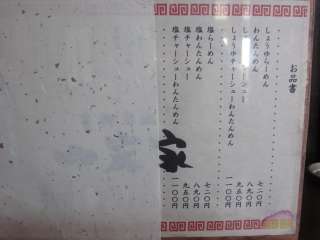 お品書
しょうゆらーめん 七二〇円
わんたんめん 八九〇円
しょうゆチャーシューめん 九五〇円
しょうゆチャーシューわんたんめん 一一〇〇円
塩らーめん 七二〇円
塩わんたんめん 八九〇円
塩チャーシューめん 九五〇円
塩チャーシューわんたんめん 一一〇〇円